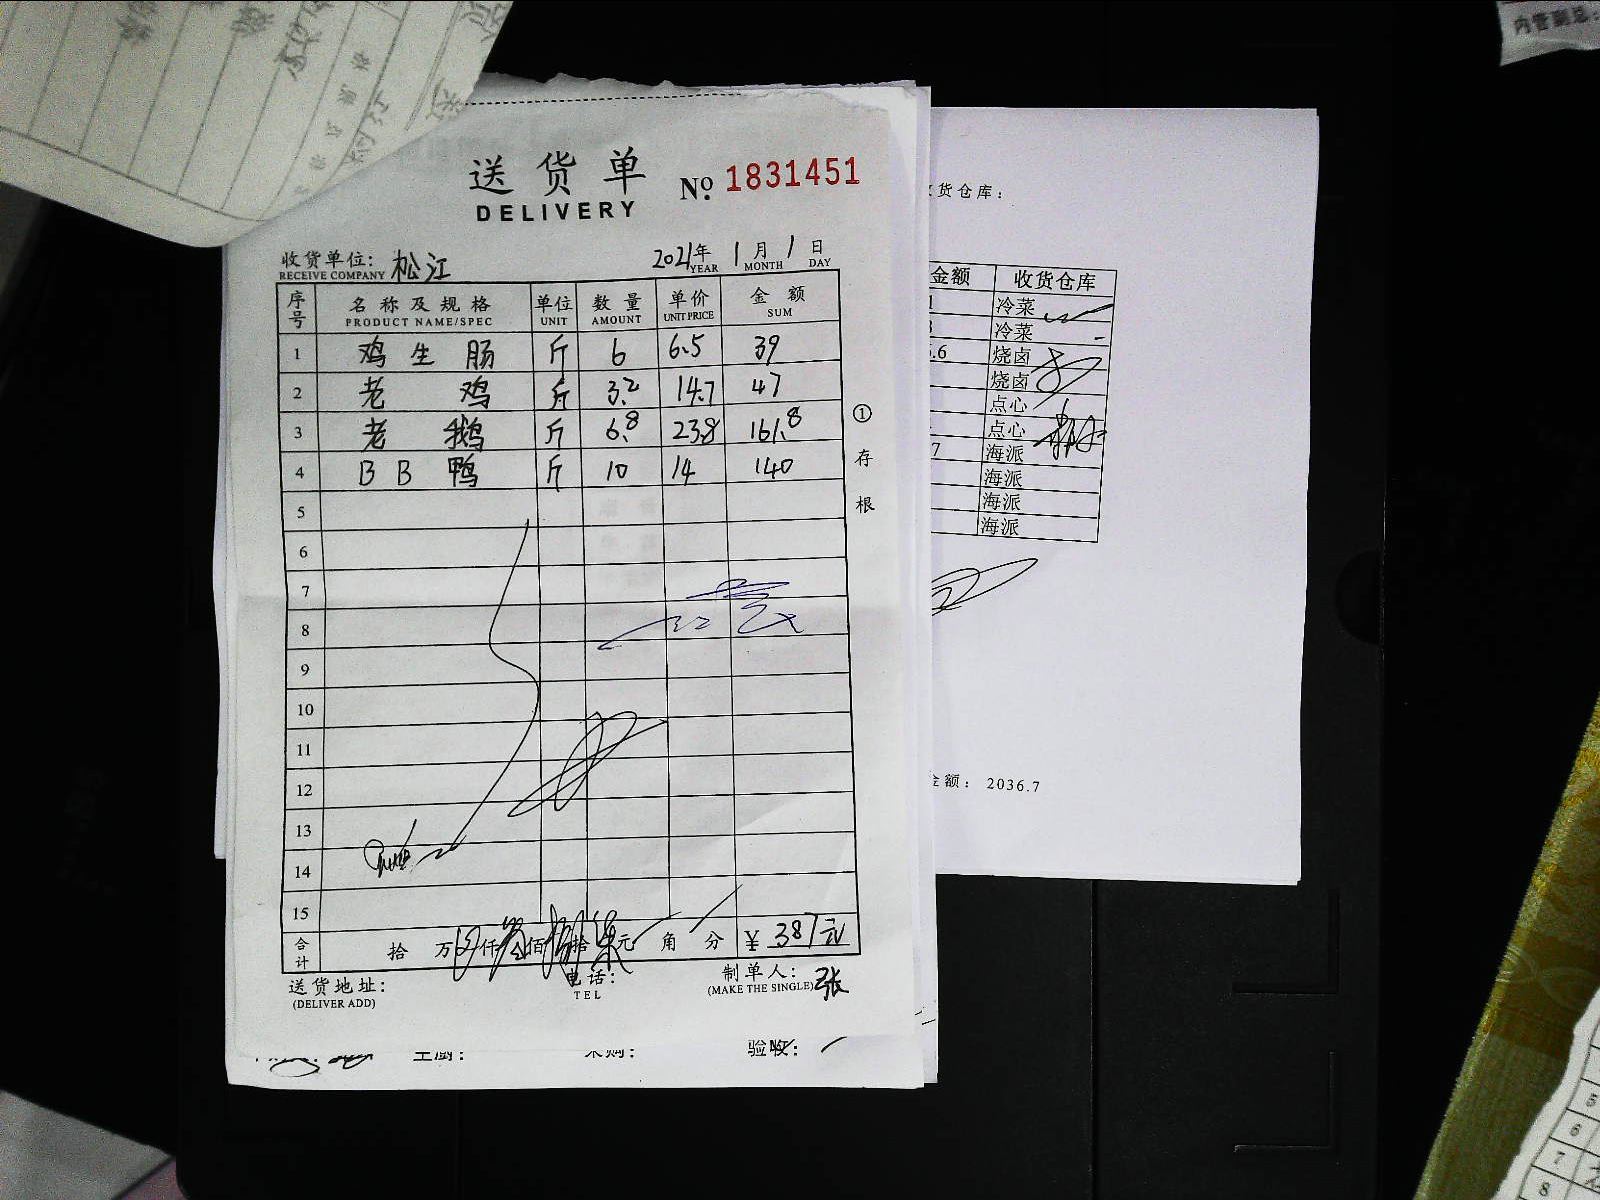 内管副总:
送货单
DELIVERY
No. 1831451
收货单位: 松江
RECEIVE COMPANY
2021年 1月 1日
YEAR MONTH DAY
序号 名称及规格 单位 数量 单价 金额
PRODUCT NAME/SPEC UNIT AMOUNT UNIT PRICE SUM
1 鸡生肠 斤 6 6.5 39
2 老鸡 斤 3.2 14.7 47
3 老鹅 斤 6.8 23.8 161.8
4 BB鸭 斤 10 14 140
5
6
7
8
9
10
11
12
13
14
15
合计 拾 万 仟 叁佰 捌拾 柒元 角 分 ¥ 387元
①存根
送货地址:
(DELIVER ADD)
电话:
TEL
制单人: 张
(MAKE THE SINGLE)
验收:
货仓库:
金额 收货仓库
冷菜
冷菜
.6 烧卤
烧卤
点心
点心
7 海派
海派
海派
海派
金额: 2036.7
5
6
7
8